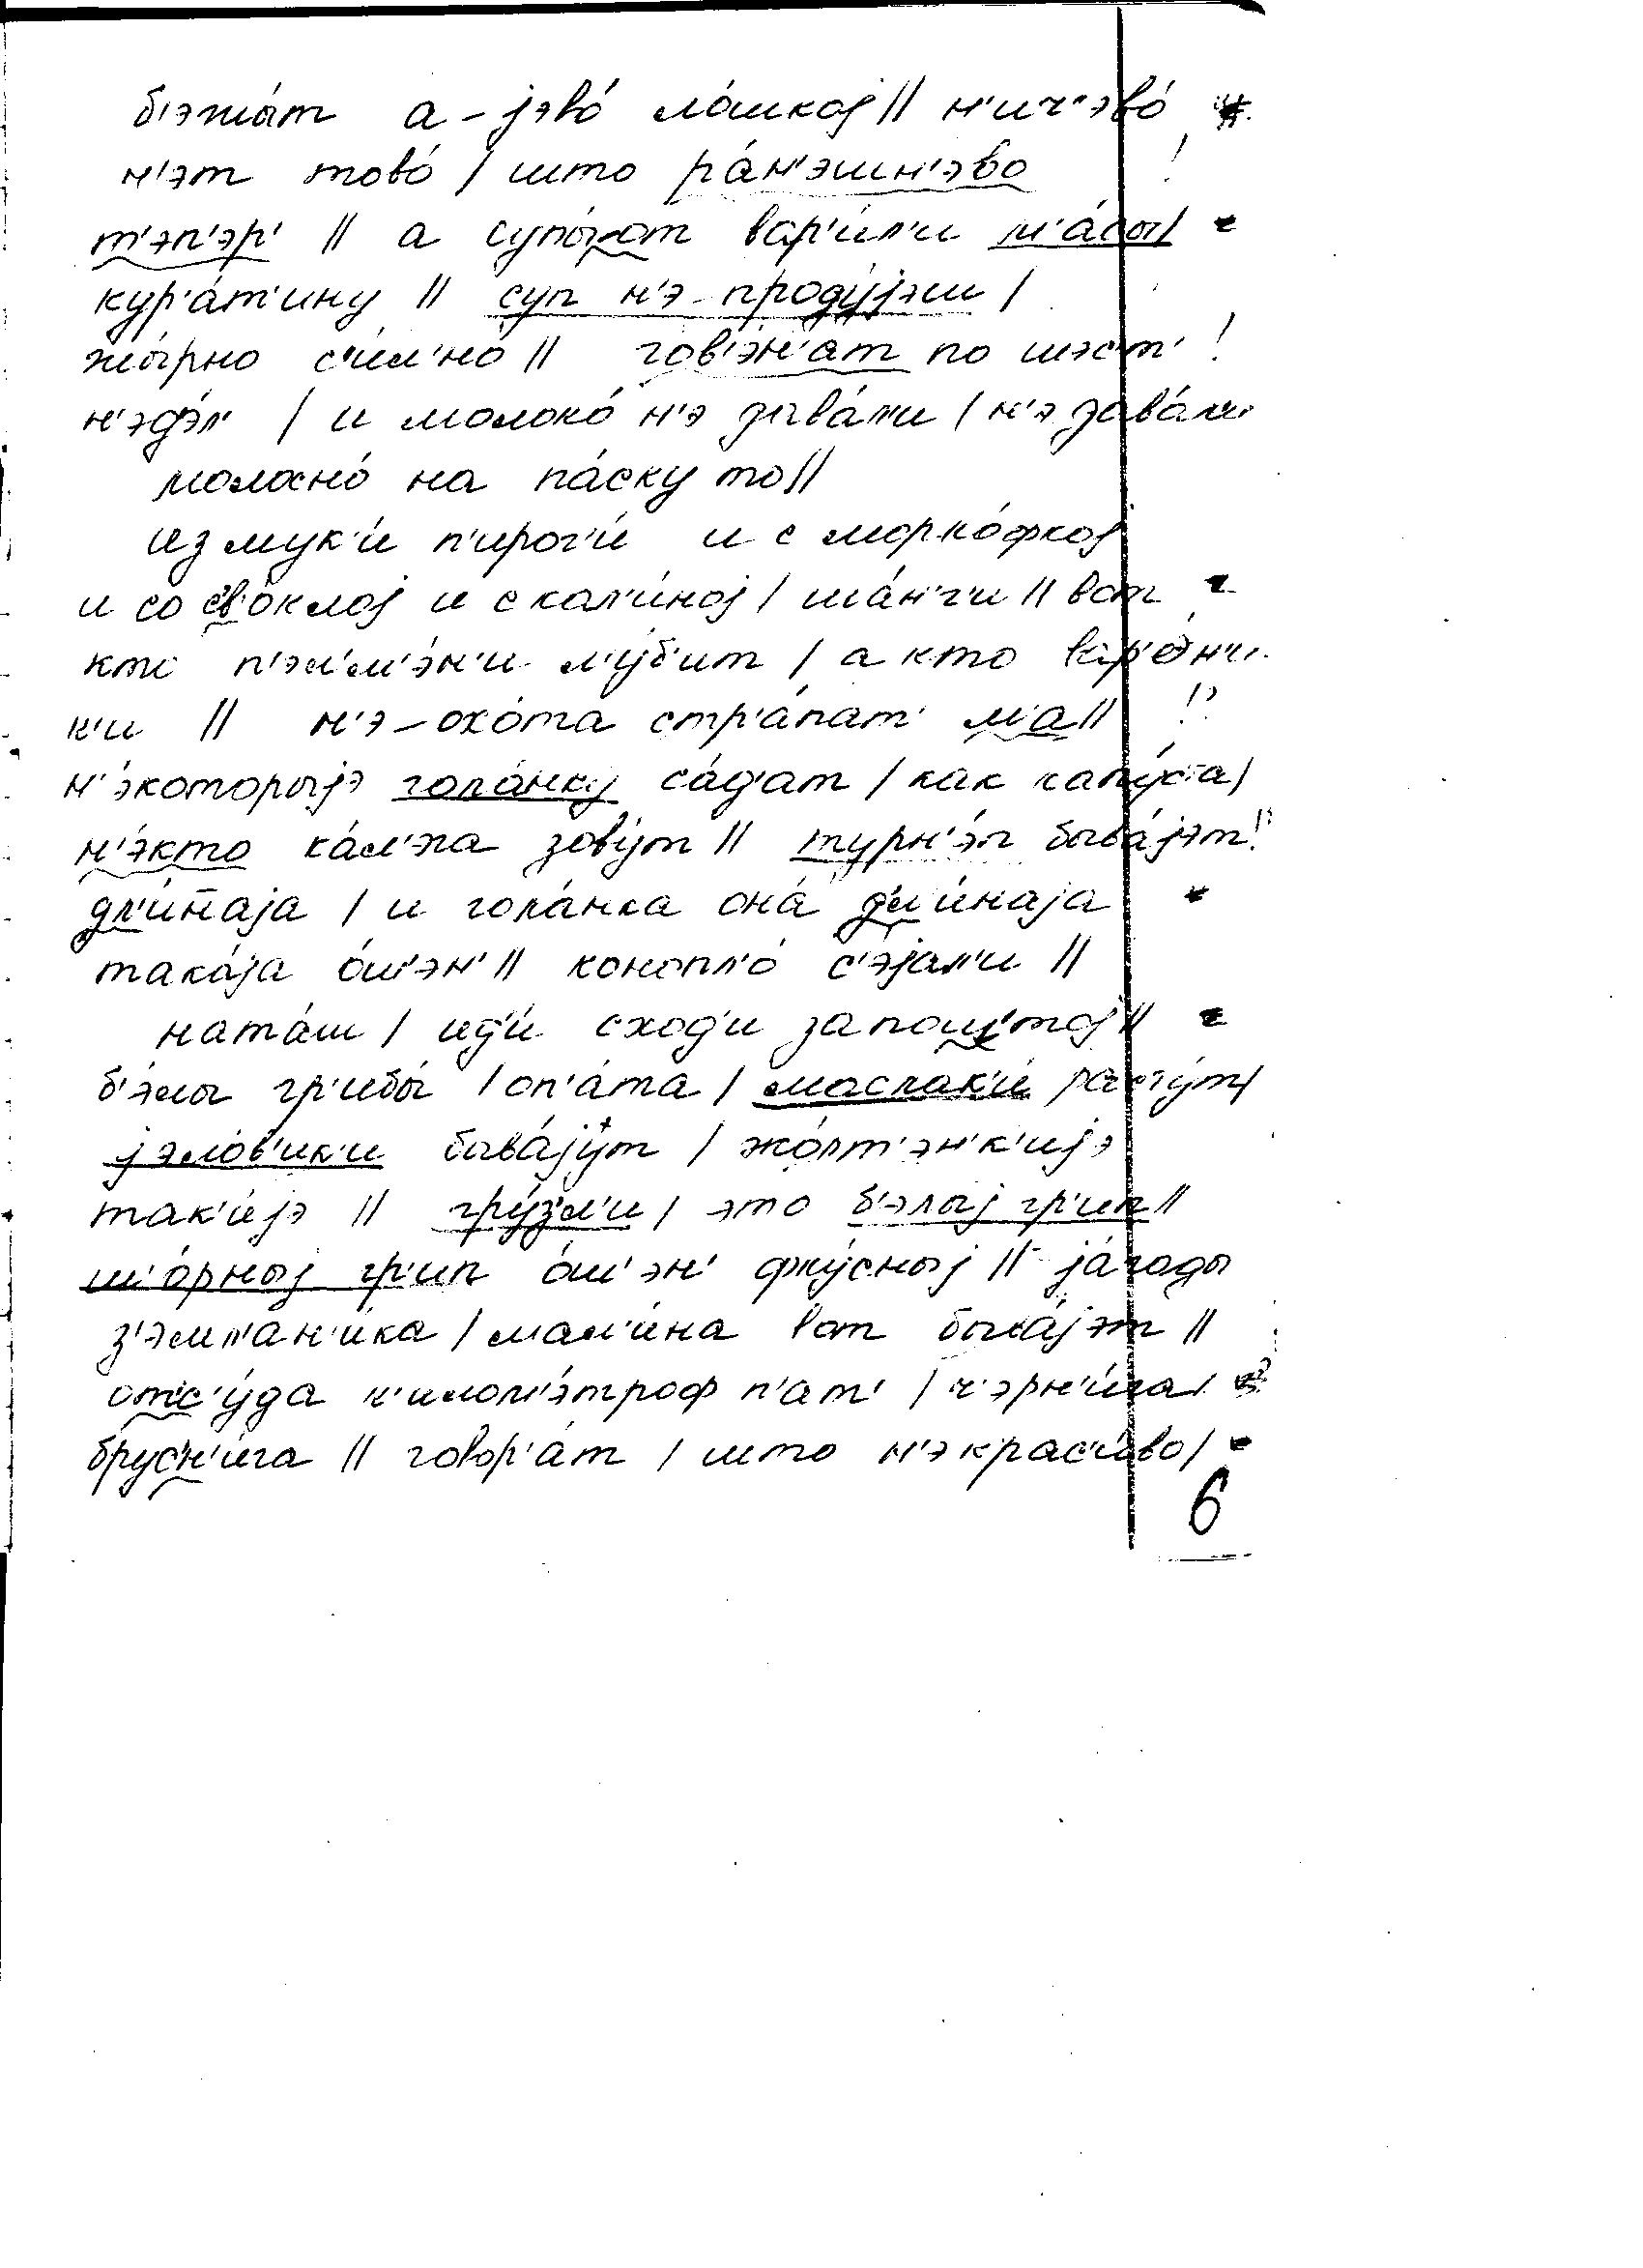 б'эжа́т а-jэво́ ло́шкоj || н'ич'эво́
н'эт тово́ | што ра́н'эшн'эво !
т'эп'э́р' || а супы́-от вар'и́л'и м'а́сы |
кур'а́т'ину || суп н'э-проду́jэш |
жы́рно с'и́л'но || гов'э́н'ат по шэст' !
н'эд'э́л' | и молоко́ н'э дава́л'и | н'э дава́ли
молосно́ на па́ску то ||
из мук'и́ п'ирог'и́ и с морко́фкоj
и со св'о́клоj и с кал'и́ноj | ша́н'г'и || вот
кто п'эл'м'э́н'и л'у́б'ит | а кто вар'э́н'и
к'и || н'э-охо́та стр'а́пат' м'а || !?
н'э́которыjэ гола́нку са́д'ат | как капу́ста |
н'э́кто ка́л'ка зову́т || турн'э́п быва́jэт !?
дл'и́н̄аjа | и гола́нка она́ дл'и́наjа
така́jа о́ш'эн' || конопл'о́ с'э́jал'и ||
ната́ш | ид'и́ сход'и за-по́штоj ||
б'э́лы гр'ибы́ | оп'а́та | маслак'и́ расту́т |
jэло́в'ик'и быва́jут | жо́лт'эн'к'иjэ
так'и́jэ || гру́зл'и | это б'э́лыj гр'ип ||
ш'о́рныj гр'ип о́ш'эн' фку́сныj || jа́годы
з'эмл'ан'и́ка | мал'и́на вот быва́jэт ||
отс'у́да к'илом'э́троф п'ат' | ч'эрн'и́га |
брус'н'и́га || говор'а́т | што н'экрас'и́во |
6